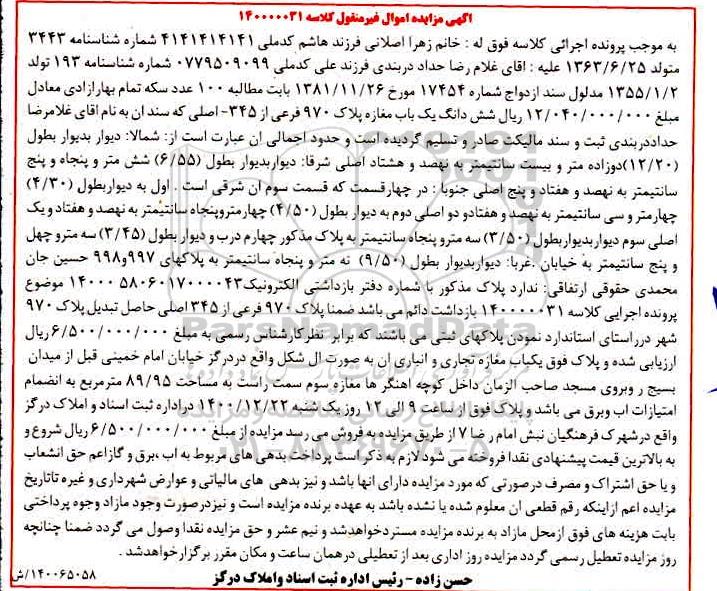 آگهی مزایده اموال غیرمنقول کلاسه ۱۴۰۰۰۰۰۳۱
به موجب پرونده اجرائی کلاسه فوق له : خانم زهرا اصلانی فرزند هاشم کدملی ۴۱۴۱۴۱۴۱۴۱ شماره شناسنامه ۳۴۴۳
متولد ۱۳۶۳/۶/۲۵ علیه : اقای غلام رضا حداد دربندی فرزند علی کدملی ۰۷۷۹۵۰۹۰۹۹ شماره شناسنامه ۱۹۳ تولد
۱۳۵۵/۱/۲ مدلول سند ازدواج شماره ۱۷۴۵۴ مورخ ۱۳۸۱/۱۱/۲۶ بابت مطالبه ۱۰۰ عدد سکه تمام بهارازادی معادل
مبلغ ۱۲/۰۴۰/۰۰۰/۰۰۰ ریال شش دانگ یک باب مغازه پلاک ۹۷۰ فرعی از ۳۴۵- اصلی که سند ان به نام اقای غلامرضا
حداددربندی ثبت و سند مالکیت صادر و تسلیم گردیده است و حدود اجمالی ان عبارت است از: شمالا: دیوار بدیوار بطول
(۱۲/۲۰)دوزاده متر و بیست سانتیمتر به نهصد و هشتاد اصلی شرقا: دیواربدیوار بطول (۶/۵۵) شش متر و پنجاه و پنج
سانتیمتر به نهصد و هفتاد و پنج اصلی جنوبا : در چهارقسمت که قسمت سوم ان شرقی است . اول به دیواربطول (۴/۳۰)
چهارمتر و سی سانتیمتر به نهصد و هفتادو دو اصلی دوم به دیوار بطول (۴/۵۰) چهارمتروپنجاه سانتیمتر به نهصد و هفتاد و یک
اصلی سوم دیواربدیواربطول (۳/۵۰) سه مترو پنجاه سانتیمتر به پلاک مذکور چهارم درب و دیوار بطول (۳/۴۵) سه مترو چهل
و پنج سانتیمتر به خیابان .غربا: دیواربدیوار بطول (۹/۵۰) نه متر و پنجاه سانتیمتر به پلاکهای ۹۹۷و۹۹۸ حسین جان
محمدی حقوقی ارتفاقی: ندارد پلاک مذکور با شماره دفتر بازداشتی الکترونیک۱۴۰۰۰۵۸۰۶۰۱۷۰۰۰۰۴۳ موضوع
پرونده اجرایی کلاسه ۱۴۰۰۰۰۰۳۱ بازداشت دائم می باشد ضمنا پلاک ۹۷۰ فرعی از ۳۴۵ اصلی حاصل تبدیل پلاک ۹۷۰
شهر درراستای استاندارد نمودن پلاکهای ثبتی می باشند که برابر نظر کارشناس رسمی به مبلغ ۶/۵۰۰/۰۰۰/۰۰۰ ریال
ارزیابی شده و پلاک فوق یکباب مغازه تجاری و انباری ان به صورت ال شکل واقع دردرگز خیابان امام خمینی قبل از میدان
بسیج ر وبروی مسجد صاحب الزمان داخل کوچه اهنگر ها مغازه سوم سمت راست به مساحت ۸۹/۹۵ مترمربع به انضمام
امتیازات اب وبرق می باشد و پلاک فوق از ساعت ۹ الی ۱۲ روز یک شنبه ۱۴۰۰/۱۲/۲۲ دراداره ثبت اسناد و املاک درگز
واقع درشهرک فرهنگیان نبش امام رضا ۷ از طریق مزایده به فروش می رسد مزایده از مبلغ ۶/۵۰۰/۰۰۰/۰۰۰ ریال شروع و
به بالاترین قیمت پیشنهادی نقدا فروخته می شود لازم به ذکر است پرداخت بدهی های مربوط به اب ،برق و گازاعم حق انشعاب
و یا حق اشتراک و مصرف درصورتی که مورد مزایده دارای انها باشد و نیز بدهی های مالیاتی و عوارض شهرداری و غیره تاتاریخ
مزایده اعم ازاینکه رقم قطعی ان معلوم شده یا نشده باشد به عهده برنده مزایده است و نیزدرصورت وجود مازاد وجوه پرداختی
بابت هزینه های فوق ازمحل مازاد به برنده مزایده مستردخواهدشد و نیم عشر و حق مزایده نقدا وصول می گردد ضمنا چنانچه
روز مزایده تعطیل رسمی گردد مزایده روز اداری بعد از تعطیلی درهمان ساعت و مکان مقرر برگزارخواهدشد .
حسن زاده - رئیس اداره ثبت اسناد واملاک درگز
۱۴۰۰۶۵۰۵۸/ش